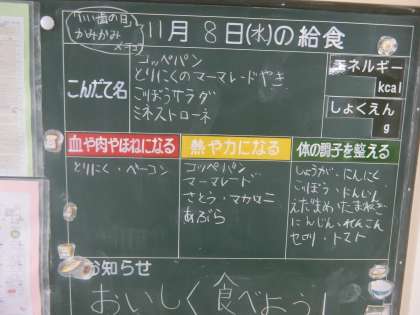 「いい歯の日」
かみかみ
メニュー
11月 8日(水)の給食
こんだて名
コッペパン
とりにくのマーマレードやき
ごぼうサラダ
ミネストローネ
エネルギー
kcal
しょくえん
g
血や肉やほねになる
とりにく・ベーコン
熱や力になる
コッペパン
マーマレード
さとう・マカロニ
あぶら
体の調子を整える
しょうが・にんにく
ごぼう・にんじん
えだまめ・たまねぎ
にんじん・れんこん
セロリ・トマト
お知らせ
おいしく食べよう!